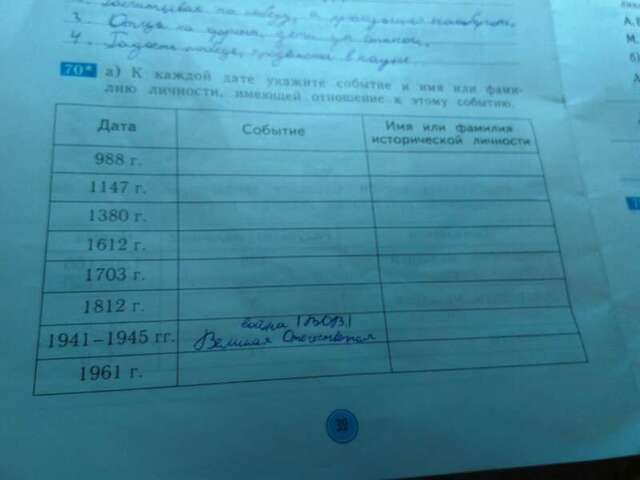 3. Отца на
4. в науке.
70* а) К каждой дате укажите событие и имя или фами-
лию личности, имеющей отношение к этому событию.
Дата Событие Имя или фамилия исторической личности
988 г.
1147 г.
1380 г.
1612 г.
1703 г.
1812 г.
война (ВОВ)
1941–1945 гг. Великая Отечественная
1961 г.
39
А.
М.
б)